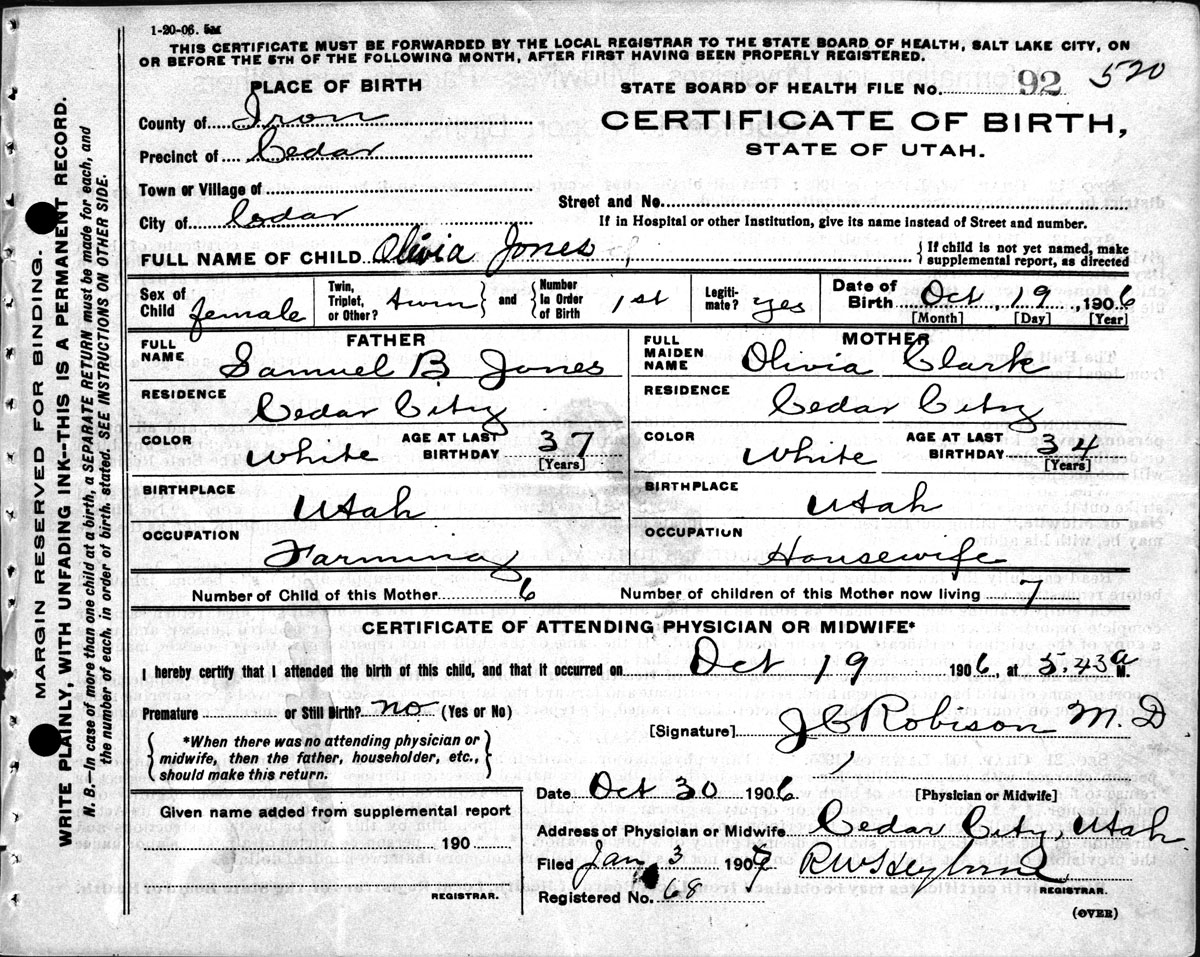 1-20-06.
THIS CERTIFICATE MUST BE FORWARDED BY THE LOCAL REGISTRAR TO THE STATE BOARD OF HEALTH, SALT LAKE CITY, ON
OR BEFORE THE 5TH OF THE FOLLOWING MONTH, AFTER FIRST HAVING BEEN PROPERLY REGISTERED.
PLACE OF BIRTH
STATE BOARD OF HEALTH FILE NO. 92 520
County of Iron
CERTIFICATE OF BIRTH,
Precinct of Cedar
STATE OF UTAH.
Town or Village of
Street and No.
City of Cedar
If in Hospital or other Institution, give its name instead of Street and number.
FULL NAME OF CHILD Olivia Jones
{ If child is not yet named, make
supplemental report, as directed
Sex of Child female
Twin, Triplet, or Other? twin } and { Number in Order of Birth 1st
Legitimate? yes
Date of Birth Oct, 19, 1906
[Month] [Day] [Year]
FATHER
MOTHER
FULL NAME Samuel B. Jones
FULL MAIDEN NAME Olivia Clark
RESIDENCE Cedar City
RESIDENCE Cedar City
COLOR White AGE AT LAST BIRTHDAY 37 [Years]
COLOR White AGE AT LAST BIRTHDAY 34 [Years]
BIRTHPLACE Utah
BIRTHPLACE Utah
OCCUPATION Farming
OCCUPATION Housewife
Number of Child of this Mother 6
Number of children of this Mother now living 7
CERTIFICATE OF ATTENDING PHYSICIAN OR MIDWIFE*
I hereby certify that I attended the birth of this child, and that it occurred on Oct 19 1906, at 3.43 a M.
Premature or Still Birth? no (Yes or No)
[Signature] J C Robison M.D
{ *When there was no attending physician or
midwife, then the father, householder, etc.,
should make this return. }
Date Oct 30 1906 [Physician or Midwife]
Given name added from supplemental report
190
REGISTRAR.
Address of Physician or Midwife Cedar City, Utah.
Filed Jan 3 1907
REGISTRAR.
Registered No. 68
(OVER)
MARGIN RESERVED FOR BINDING.
WRITE PLAINLY, WITH UNFADING INK--THIS IS A PERMANENT RECORD.
N. B.--In case of more than one child at a birth, a SEPARATE RETURN must be made for each, and
the number of each, in order of birth, stated. SEE INSTRUCTIONS ON OTHER SIDE.